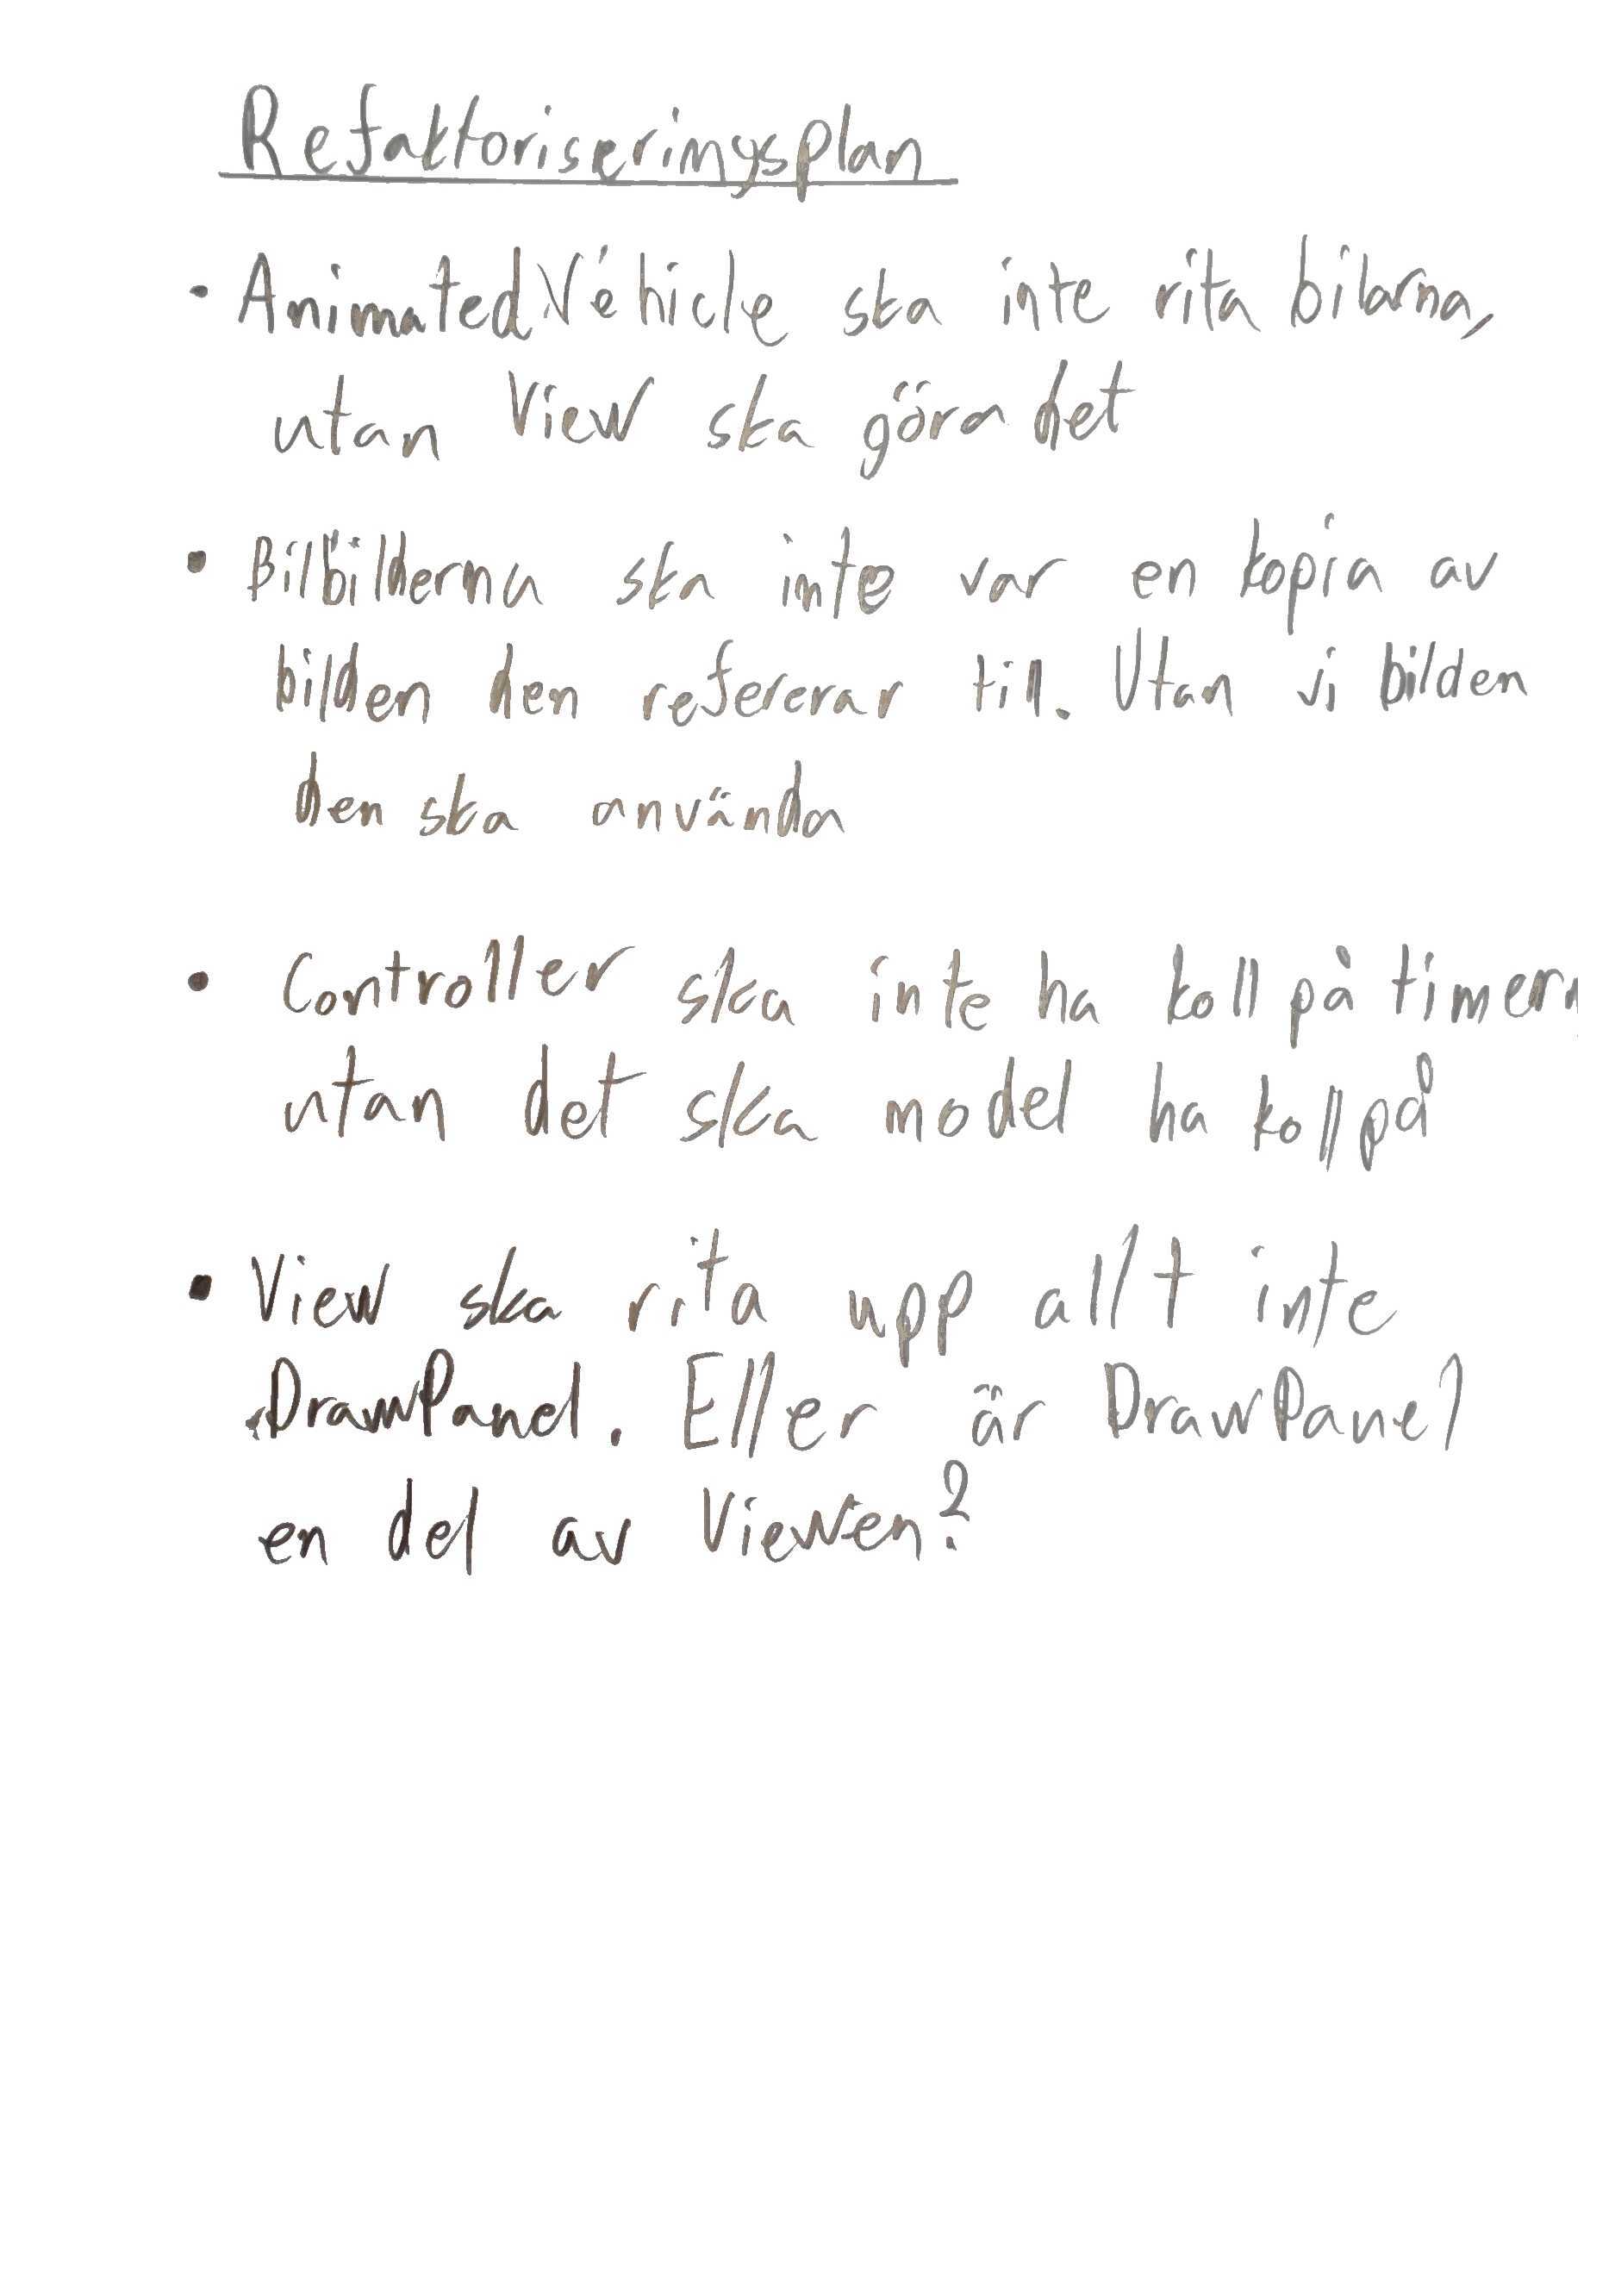 Refaktoriseringsplan
• AnimatedVehicle ska inte rita bilarna,
utan View ska göra det
• Bilbilderna ska inte var en kopia av
bilden den refererar till. Utan vi bilden
den ska använda
• Controller ska inte ha koll på timern
utan det ska model ha koll på
• View ska rita upp allt inte
DrawPanel. Eller är DrawPanel
en del av Viewen?